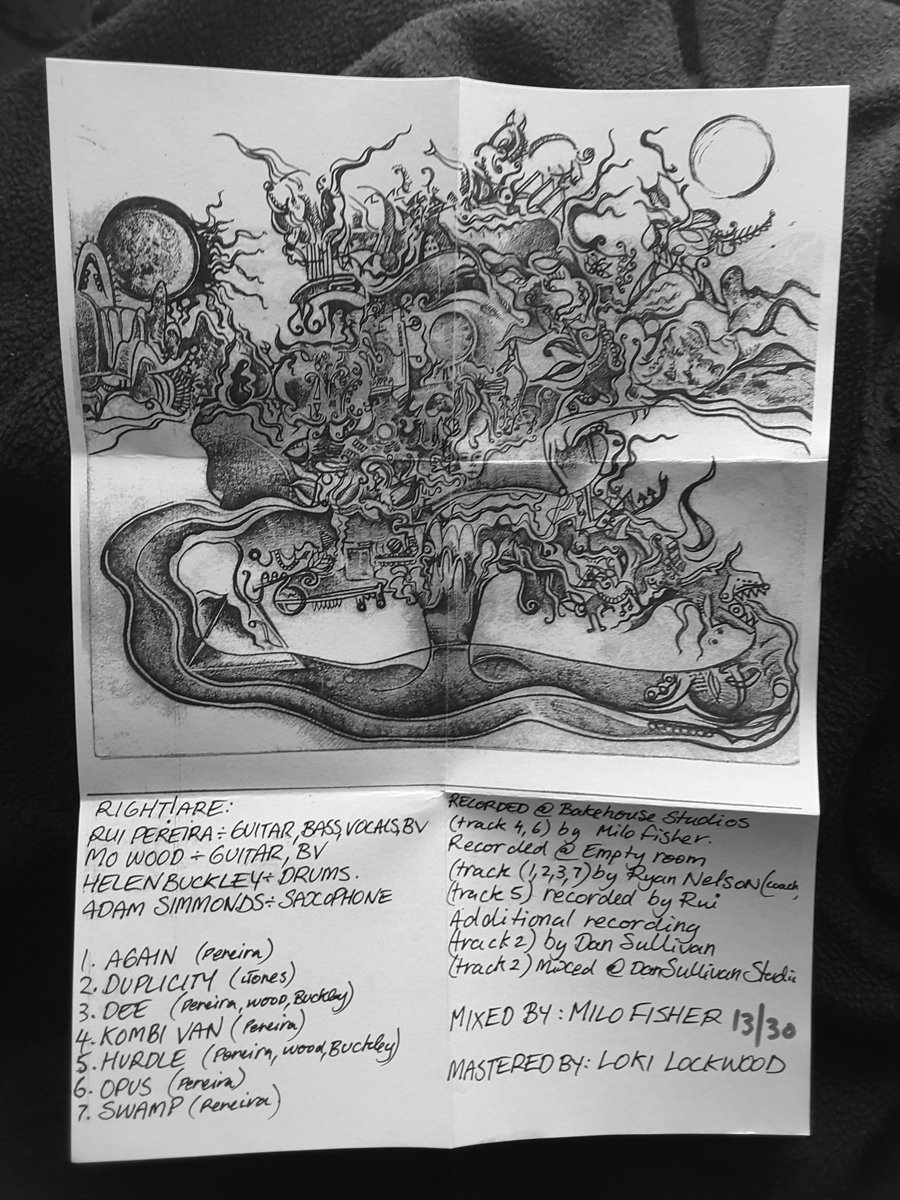 RIGHT!ARE:
RUI PEREIRA ÷ GUITAR, BASS, VOCALS, BV
MO WOOD ÷ GUITAR, BV
HELEN BUCKLEY ÷ DRUMS.
ADAM SIMMONDS ÷ SAXOPHONE
1. AGAIN (Pereira)
2. DUPLICITY (Jones)
3. DEE (Pereira, Wood, Buckley)
4. KOMBI VAN (Pereira)
5. HURDLE (Pereira, Wood, Buckley)
6. OPUS (Pereira)
7. SWAMP (Pereira)
RECORDED @ Bakehouse Studios
(track 4,6) by Milo Fisher.
Recorded @ Empty room
(track (1,2,3,7) by Ryan Nelson (coach,
(track 5) recorded by Rui
Additional recording
(track 2) by Dan Sullivan
(track 2) Mixed @ Dan Sullivan Studio
MIXED BY: MILO FISHER 13/30
MASTERED BY: LOKI LOCKWOOD